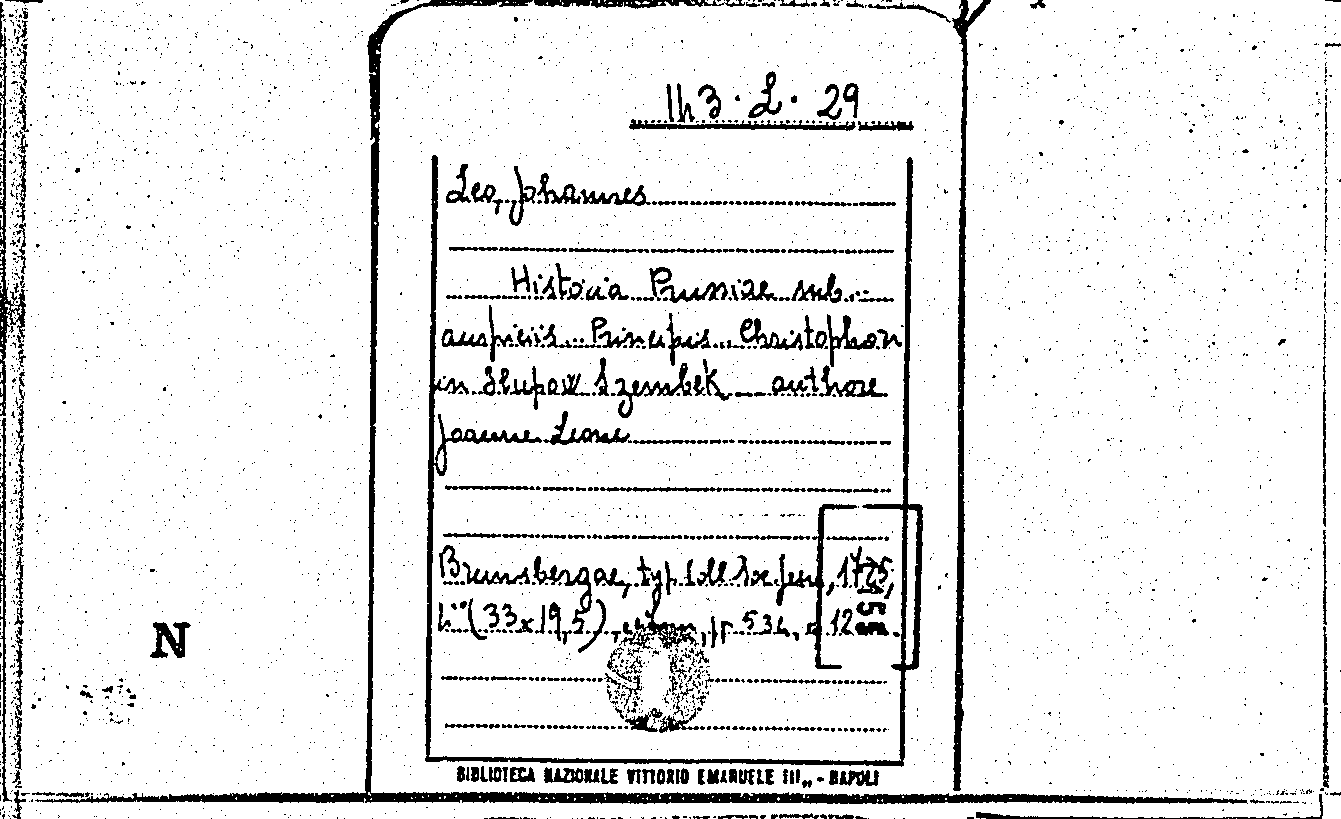 143 · L · 29
Leo, Johannes
Historia Prussiae sub...
auspiciis... Principis... Christophori
in Slupow Szembek ... authore
Joanne Leone
Brunsbergae, typ. Coll. Soc. Jesu, 1725,
(33x19,5), pp. 534, 12
N
BIBLIOTECA NAZIONALE VITTORIO EMANUELE III„ - NAPOLI